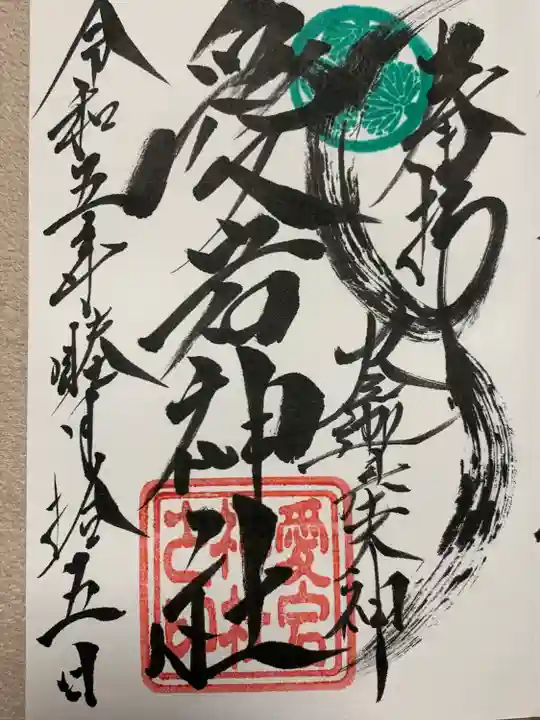 奉拝
火産霊大神
愛宕神社
愛宕神社之印
令和五年睦月拾五日